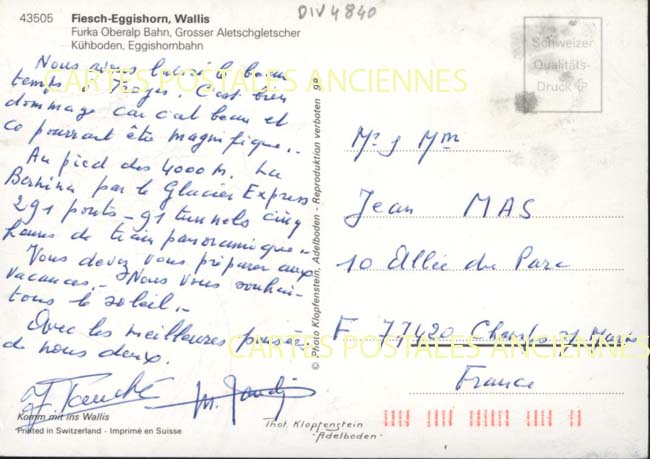 DIV4840
43505 Fiesch-Eggishorn, Wallis
Furka Oberalp Bahn, Grosser Aletschgletscher
Kühboden, Eggishornbahn
Schweizer
Qualitäts-
Druck
Nous avons laissé le beau
temps à Troyes. C'est bien
dommage car c'est beau et
ce pourrait être magnifique..
Au pied des 4000 m. La
Bernina par le Glacier Express
291 ponts - 91 tunnels cinq
heures de train panoramique..
Vous devez vous préparer aux
vacances.- Nous vous souhai-
tons le soleil.-
Avec les meilleures pensées
de nous deux.
Komm mit ins Wallis
Printed in Switzerland - Imprimé en Suisse
© Photo Klopfenstein, Adelboden - Reproduktion verboten 99
Mr & Mme
Jean MAS
10 Allée du Parc
F 77420 Champs s/ Marne
France
Phot. Klopfenstein
-Adelboden-
CARTES POSTALES ANCIENNES
CARTES POSTALES ANCIENNES